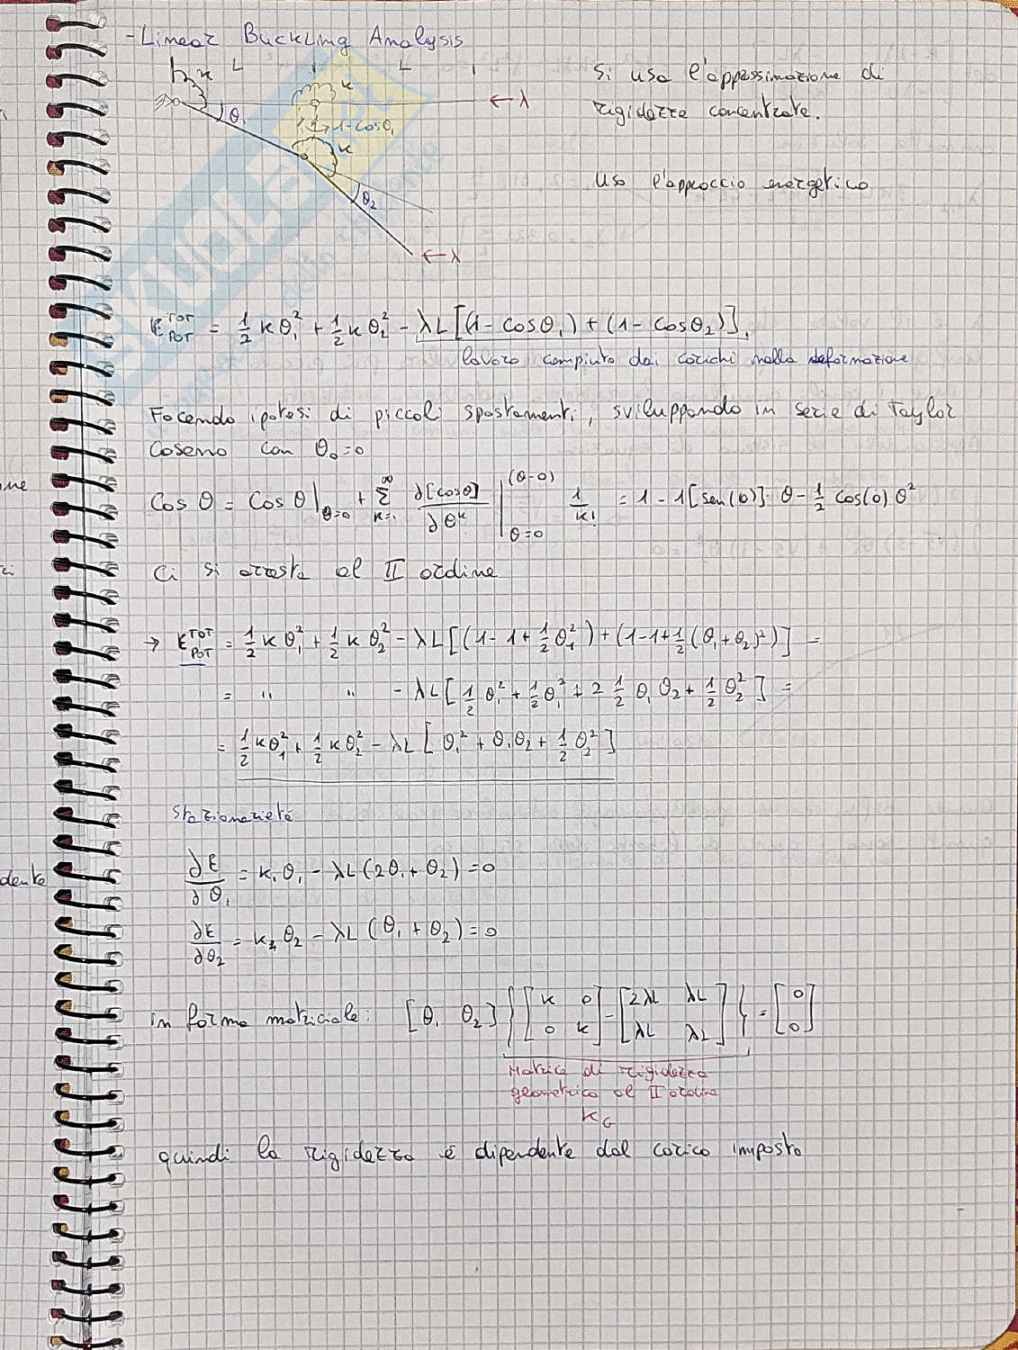 - Linear Buckling Analysis
k L L
Si usa l'appossimazione di
θ₁ k ← λ
rigidezze concentrate.
1-cosθ₁
k
Uso l'approccio energetico
θ₂
← λ
E_POT^TOT = 1/2 kθ₁² + 1/2 kθ₂² - λL[(1-cosθ₁) + (1-cosθ₂)],
lavoro compiuto dai carichi nella deformazione
Facendo ipotesi di piccoli spostamenti, sviluppando in serie di Taylor
coseno con θ₀=0
Cos θ = Cos θ|_θ=0 + Σ_k=1^∞ ∂[cosθ]/∂θ^k |_θ=0 (θ-0) 1/k! = 1 - 1[sen(0)] θ - 1/2 cos(0) θ²
Ci si arresta al II ordine
→ E_POT^TOT = 1/2 k θ₁² + 1/2 k θ₂² - λL[(1-1+1/2 θ₁²) + (1-1+1/2 (θ₁+θ₂)²)] =
= " " - λL[1/2 θ₁² + 1/2 θ₁² + 2 1/2 θ₁ θ₂ + 1/2 θ₂²] =
= 1/2 kθ₁² + 1/2 kθ₂² - λL[θ₁² + θ₁θ₂ + 1/2 θ₂²]
Stazionarietà
∂E/∂θ₁ = k₁ θ₁ - λL(2θ₁ + θ₂) = 0
dente
∂E/∂θ₂ = k₂ θ₂ - λL(θ₁ + θ₂) = 0
in forma matriciale: [θ₁ θ₂] { [k 0; 0 k] - [2λL λL; λL λL] } = [0; 0]
Matrice di rigidezza
geometrica al II ordine
k_G
quindi la rigidezza è dipendente dal carico imposto